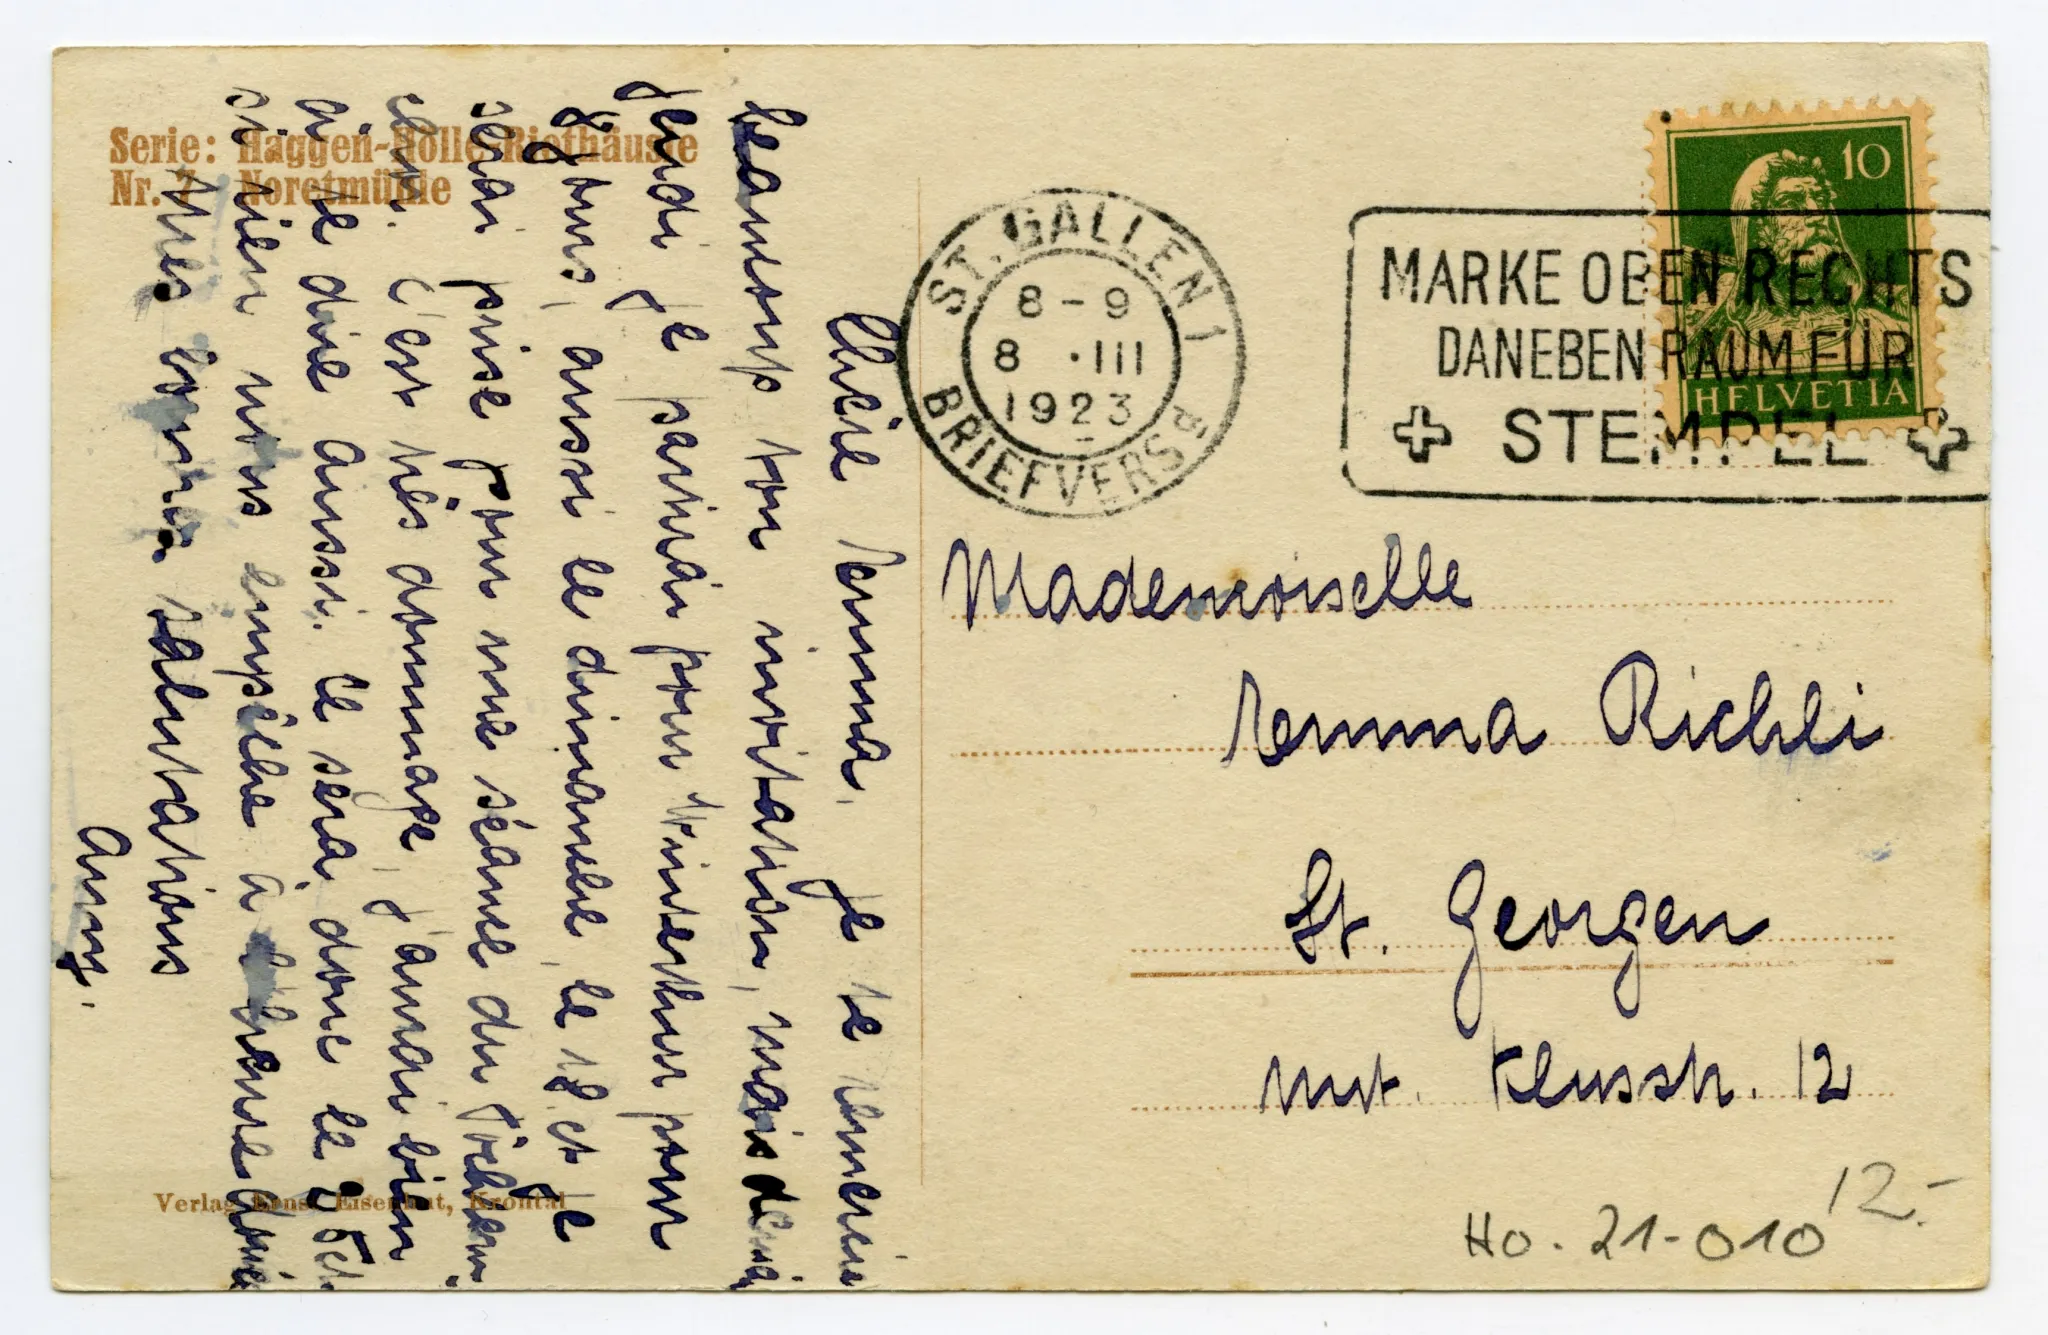 Serie: Haggen-Hölle-Riethäusle
Nr. 7 Noretmühle
Chère Emma, je te remercie
beaucoup ton invitation, mais
jeudi je partirai pour Winterthur pour
8 jours, aussi le dimanche, le 18 et je
serai prise pour une séance du
c'est très dommage, j'aurai bien
a te dire aussi. Ce sera donc le
si rien nous empêche à l'heure
Mes bonnes salutations
Anny.
Verlag Ernst Eisenhut, Krontal
ST. GALLEN 1
8-9
8 .III
1923
BRIEFVERSd.
MARKE OBEN RECHTS
DANEBEN RAUM FÜR
STEMPEL
10
HELVETIA
Mademoiselle
Emma Richli
St. Georgen
unt. Klusstr. 12
12.-
HO. 21-010